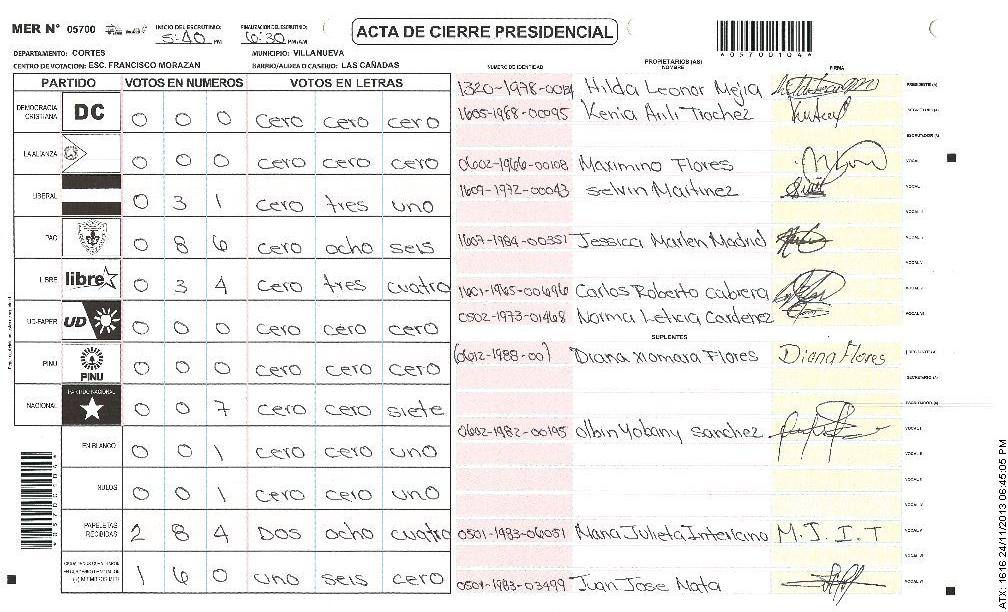 MER N° 05700
INICIO DEL ESCRUTINIO: 5:40 PM
FINALIZACION DEL ESCRUTINIO: 6:30 PM/AM
ACTA DE CIERRE PRESIDENCIAL
*05700104*
DEPARTAMENTO: CORTES
MUNICIPIO: VILLANUEVA
CENTRO DE VOTACION: ESC. FRANCISCO MORAZAN
BARRIO/ALDEA O CASERIO: LAS CAÑADAS
PARTIDO VOTOS EN NUMEROS VOTOS EN LETRAS
DEMOCRACIA CRISTIANA DC 0 0 0 cero cero cero
LA ALIANZA 0 0 0 cero cero cero
LIBERAL 0 3 1 cero tres uno
PAC 0 8 6 cero ocho seis
LIBRE libre 0 3 4 cero tres cuatro
UD-FAPER UD 0 0 0 cero cero cero
PINU PINU 0 0 0 cero cero cero
NACIONAL PARTIDO NACIONAL 0 0 7 cero cero siete
EN BLANCO 0 0 1 cero cero uno
NULOS 0 0 1 cero cero uno
PAPELETAS RECIBIDAS 2 8 4 Dos ocho cuatro
1 6 0 uno seis cero
NUMERO DE IDENTIDAD PROPIETARIOS (AS) NOMBRE FIRMA
Hilda Leonor Mejia PRESIDENTE (A)
1605-1968-00095 Kenia Arili Trochez SECRETARIO (A)
ESCRUTADOR (A)
0602-1966-00108 Maximino Flores VOCAL
1609-1972-00043 Selvin Martinez VOCAL
1607-1984-00351 Jessica Marlen Madrid
1601-1965-00696 Carlos Roberto Cabrera
0502-1973-01468 Norma Leticia Cardenez
SUPLENTES
Diana Xiomara Flores Diana Flores
SECRETARIO (A)
ESCRUTADOR (A)
0602-1982-00195 Olbin Yobany Sanchez
0501-1983-06051 Maria Julieta Interiano M. J. I. T
0501-1983-03499 Juan Jose Mata
ATX:1616 24/11/2013 06:45:05 PM